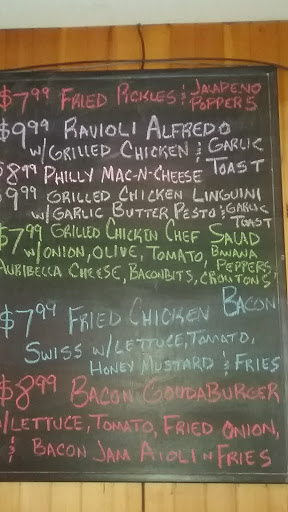 $7.99 FRIED PICKLES & JALAPENO
POPPERS
$9.99 RAVIOLI ALFREDO
W/GRILLED CHICKEN & GARLIC
TOAST
$8.99 PHILLY MAC-N-CHEESE
$9.99 GRILLED CHICKEN LINGUINI
W/GARLIC BUTTER PESTO & GARLIC
TOAST
$7.99 GRILLED CHICKEN CHEF SALAD
W/ONION, OLIVE, TOMATO, BANANA
PEPPERS,
AURIBELLA CHEESE, BACONBITS, CROUTONS
$7.99 FRIED CHICKEN BACON
SWISS W/LETTUCE, TOMATO,
HONEY MUSTARD & FRIES
$8.99 BACON GOUDABURGER
W/LETTUCE, TOMATO, FRIED ONION,
& BACON JAM AIOLI N FRIES